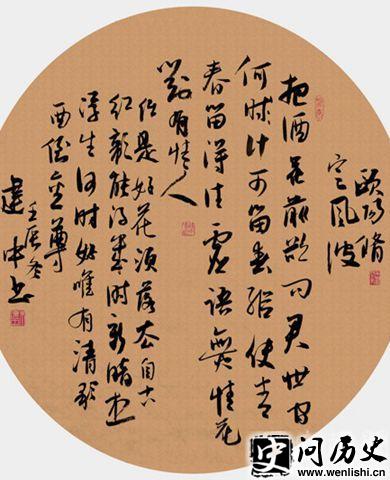 欧陽脩
定風波
把酒花前欲問君世間
何時計可留春縱使青
春留得住虚語無情花
對有情人
任是好花須落去自古
紅顏能得幾時新暗想
浮生何時好唯有清歌
一曲倒金尊
壬辰冬
建中书
史问历史
www.wenlishi.cn